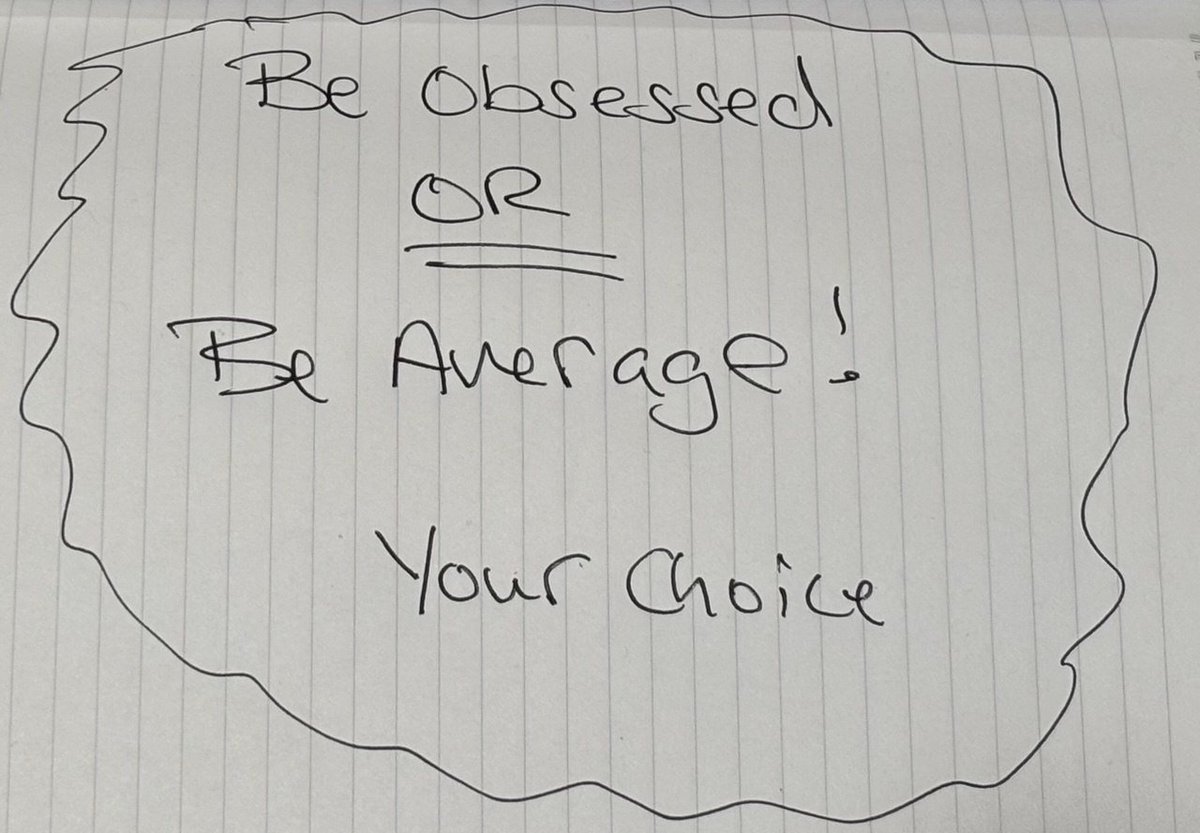 Be Obsessed
OR
Be Average!
Your Choice